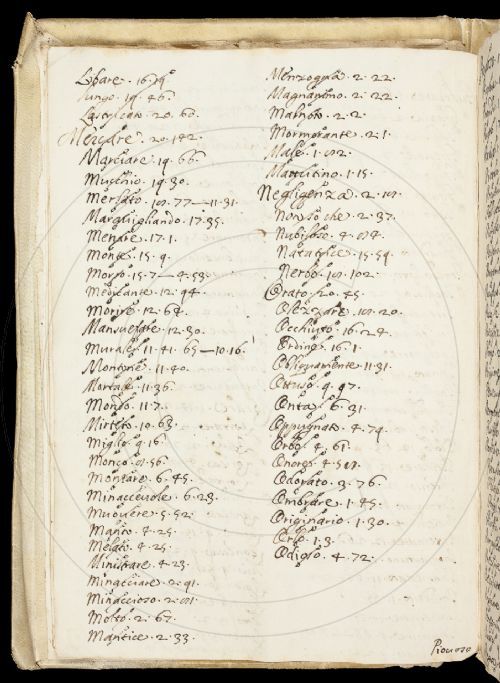 Mercare. 20. 142.
Marciare. 19. 66.
Muschio. 19. 30.
Mersato. 77—11. 31.
Marauigliando. 17. 35.
Menare. 17. 1.
Monte. 15. 9.
Morso. 15. 7—4. 53.
Medicante. 12. 94.
Morire. 12. 64.
Mansuefare. 12. 30.
Murale. 11. 41. 65—10. 16.
Montone. 11. 40.
Mortale. 11. 36.
Mondo. 11. 7.
Mirteto. 10. 63.
Miglio. 9. 16.
Monco. 56.
Montare. 6. 45.
Minacceuole. 6. 23.
Muouere. 5. 52.
Manto. 4. 25.
Melato. 4. 25.
Ministrare. 4. 23.
Minacciare. 2. 91.
Minaccioso. 2.
Molto. 2. 67.
Mantice. 2. 33.
Menzogna. 2. 22.
Magnanimo. 2. 22.
Malnoto. 2. 2.
Mormorante. 2. 1.
Male. 1.
Mattutino. 1. 15.
Negligenza. 2.
Non so che. 2. 37.
Nubiloso. 4.
Natatrice. 15. 59.
Nerbo. 102.
Orato. 20. 45.
Olezzare. 20.
Occhiuto. 16. 24.
Ordine. 16. 1.
Obliquamente. 11. 31.
Ottuso. 9. 97.
Onta. 6. 31.
Oppugnato. 4. 74.
Orbo. 4. 61.
Onore. 4.
Odorato. 3. 76.
Ombrare. 1. 45.
Originario. 1. 30.
Orlo. 1. 3.
Odioso. 4. 72.